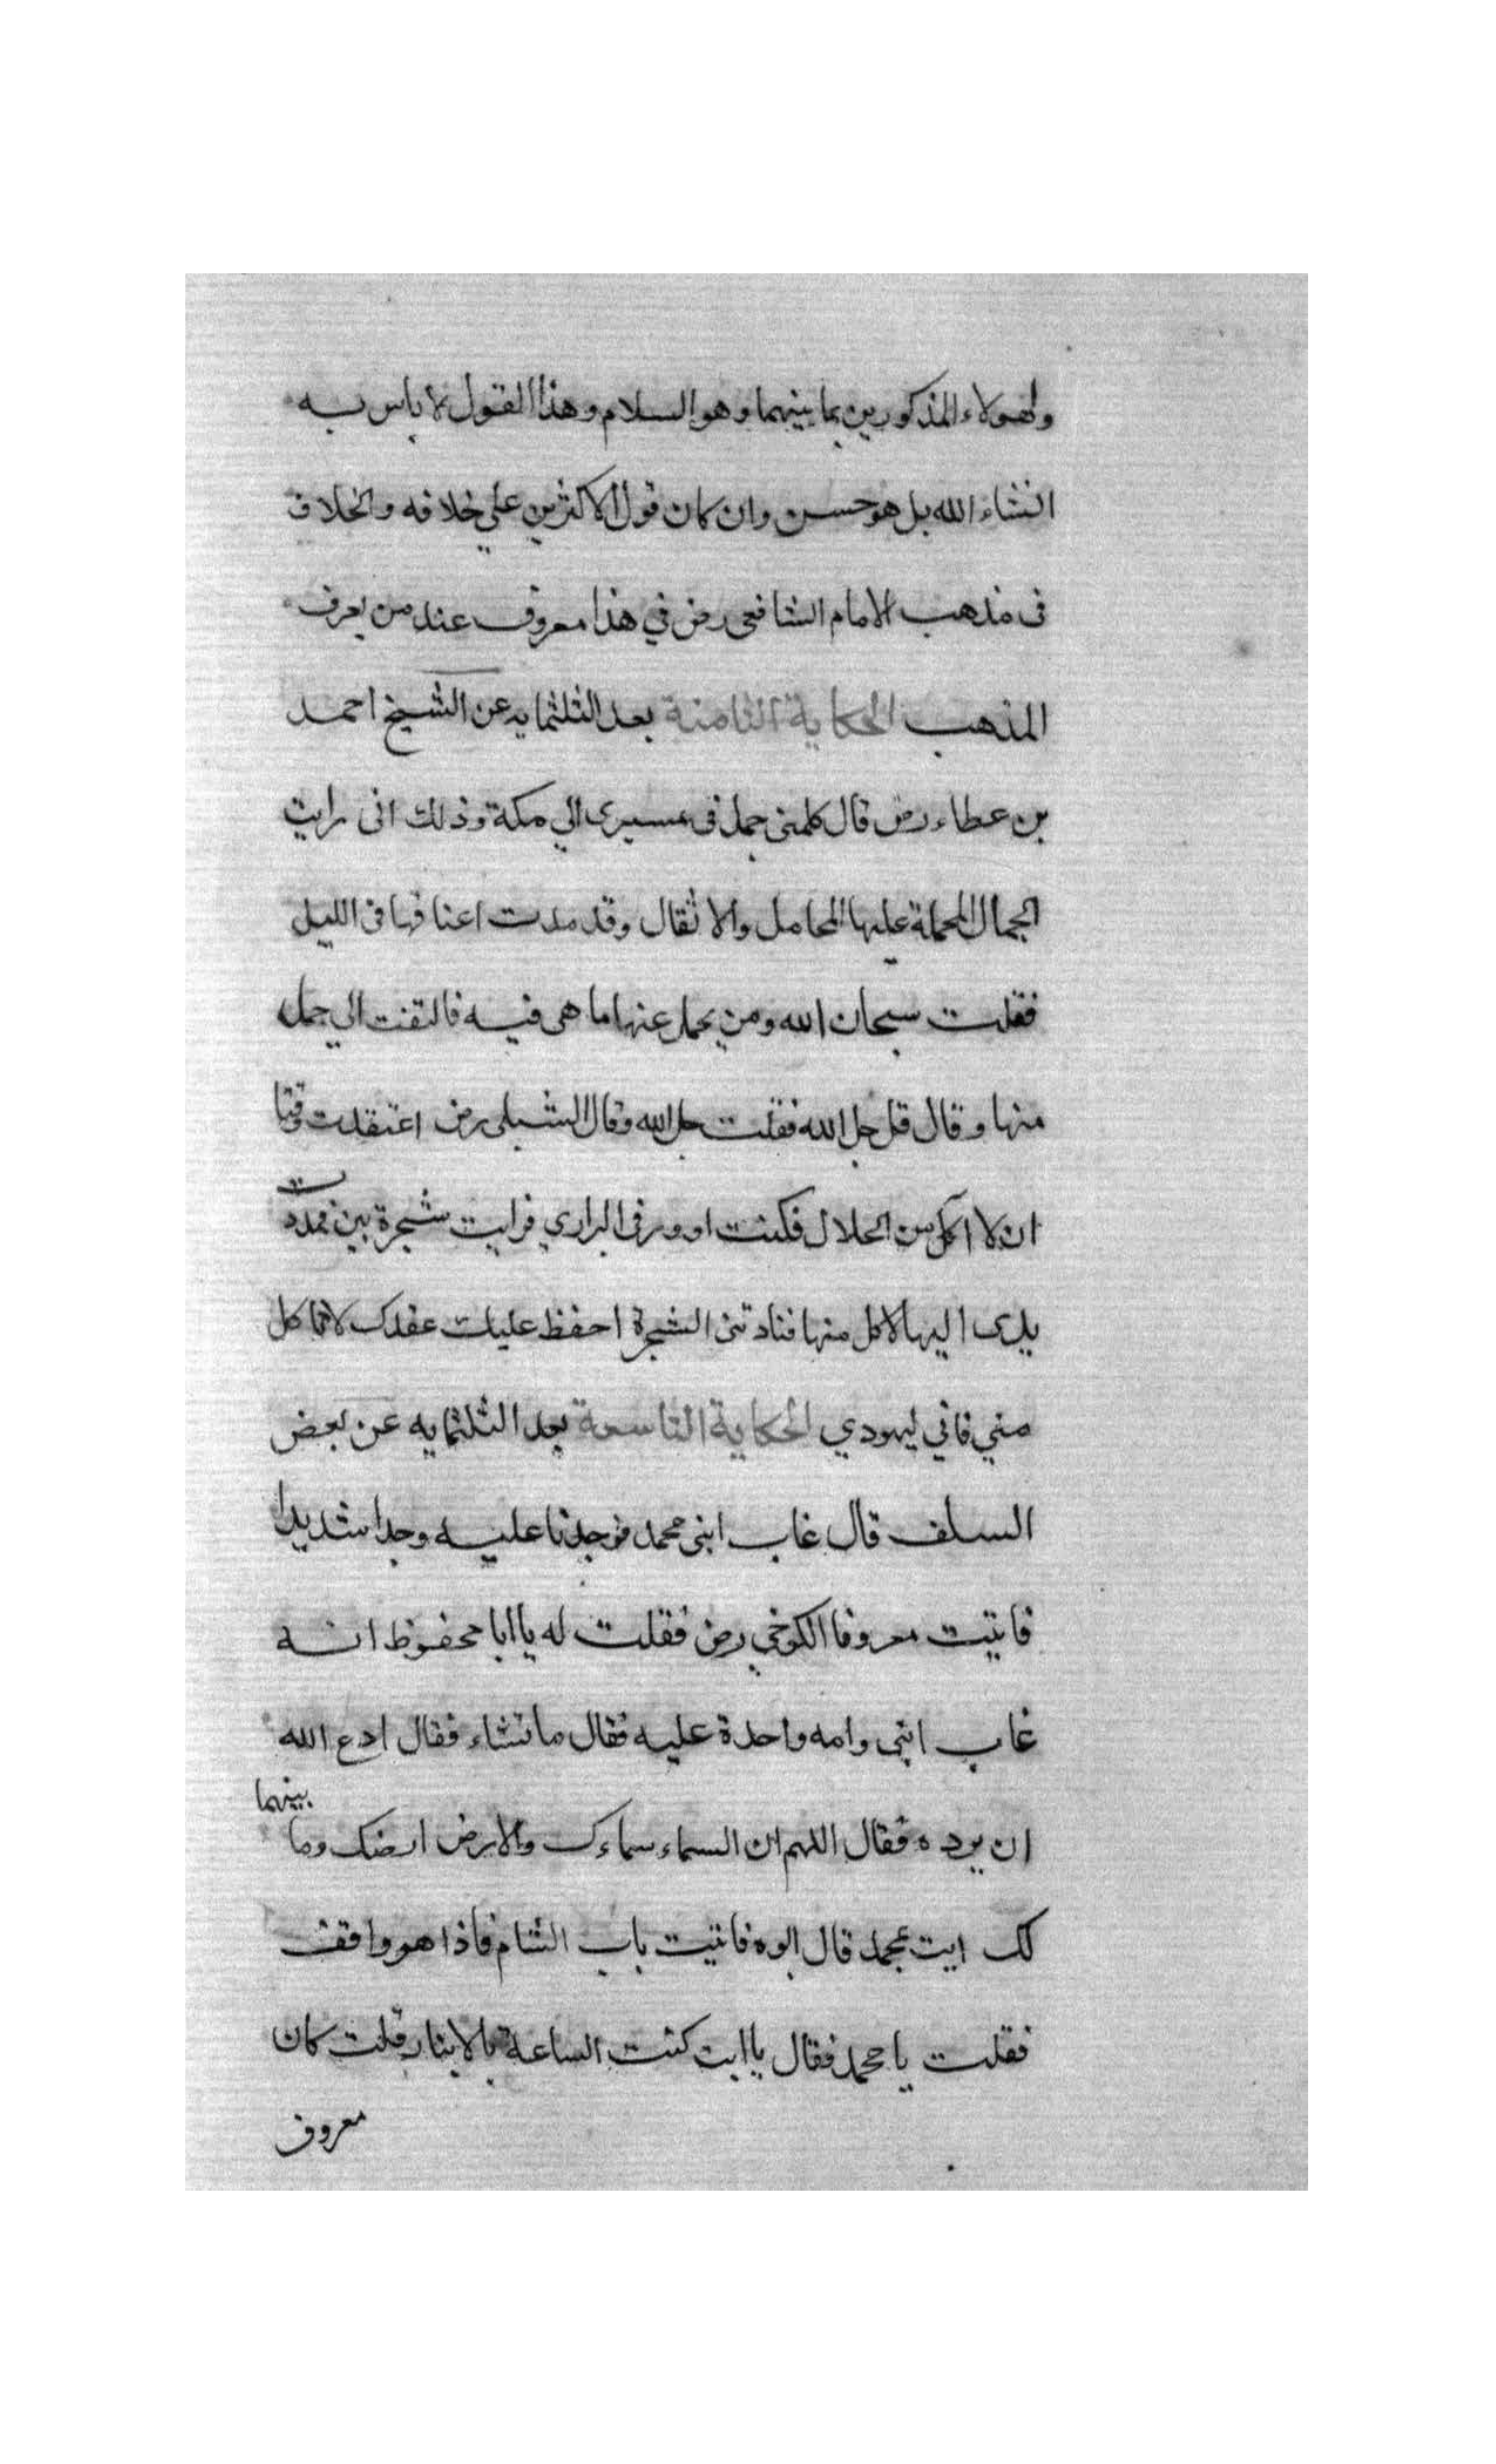 ولهولاء المذكورين بما بينهما وهو السلام وهذا القول لا باس به
انشاء الله بل هو حسن وان كان قول الاكثرين علي خلافه والخلاف
فى مذهب الامام الشافعى رض في هذا معروف عند من يعرف
المذهب الحكاية الثامنة بعد الثلثمايه عن الشيخ احمد
بن عطاء رض قال كلمنى جمل فى مسيرى الي مكة وذلك انى رايت
الجمال المحملة عليها المحامل والاثقال وقد مدت اعناقها فى الليل
فقلت سبحان الله ومن يحمل عنها ما هى فيه فالتفت الي جمل
منها وقال قل جل الله فقلت جل الله وقال الشبلى رض اعتقدت وقتا
ان لا اكل من الحلال فكنت ادور فى البراري فرايت شجرة تين فمددت
يدى اليها لاكل منها فنادتنى الشجرة احفظ عليك عقدك لا تاكل
مني فاني ليهودي الحكاية التاسعة بعد الثلثمايه عن بعض
السلف قال غاب ابنى محمد فوجدنا عليه وجدا شديدا
فاتيت معروفا الكرخي رض فقلت له يا ابا محفوظ انه
غاب ابنى وامه واجدة عليه فقال ما تشاء فقال ادع الله
ان يرده فقال اللهم ان السماء سماءك والارض ارضك وما بينهما
لك ايت بمحمد قال ابوه فاتيت باب الشام فاذا هو واقف
فقلت يا محمد فقال يا ابت كنت الساعة بالانبار قلت كان
معروف